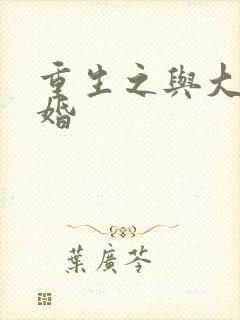 重生之與大
婚
葉廣芩